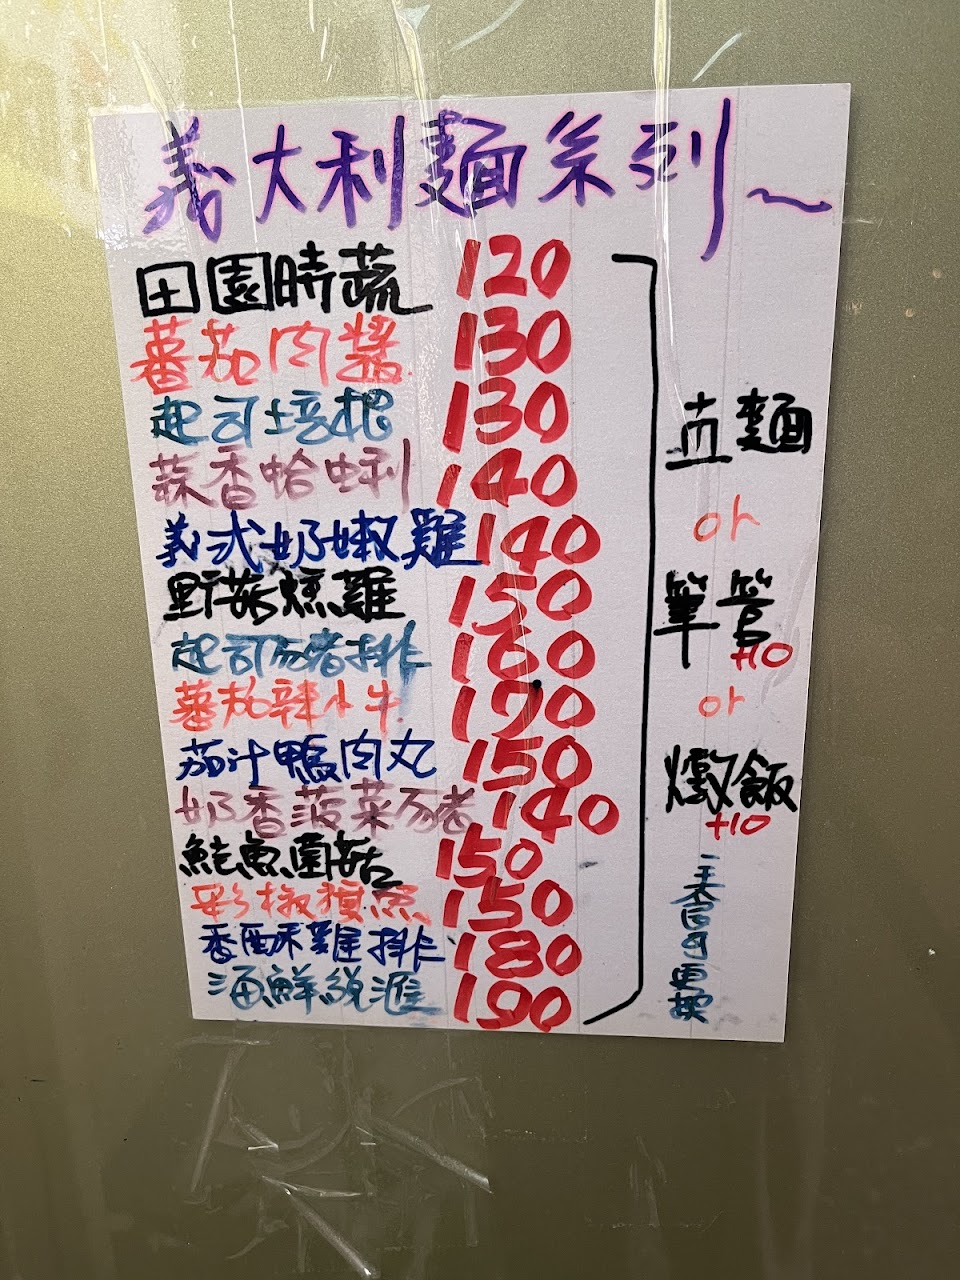 義大利麵系列~
田園時蔬 120
蕃茄肉醬 130
起司培根 130
蒜香蛤蜊 140
義式奶嫩雞 140
野菇燻雞 150
起司豬排 160
蕃茄辣小牛 170
茄汁鴨肉丸 150
奶香菠菜豬 140
鮭魚菌菇 150
彩椒旗魚 150
香酥雞排 180
海鮮總匯 190
直麵
or
筆管
+10
or
燉飯
+10
主香皆可更換